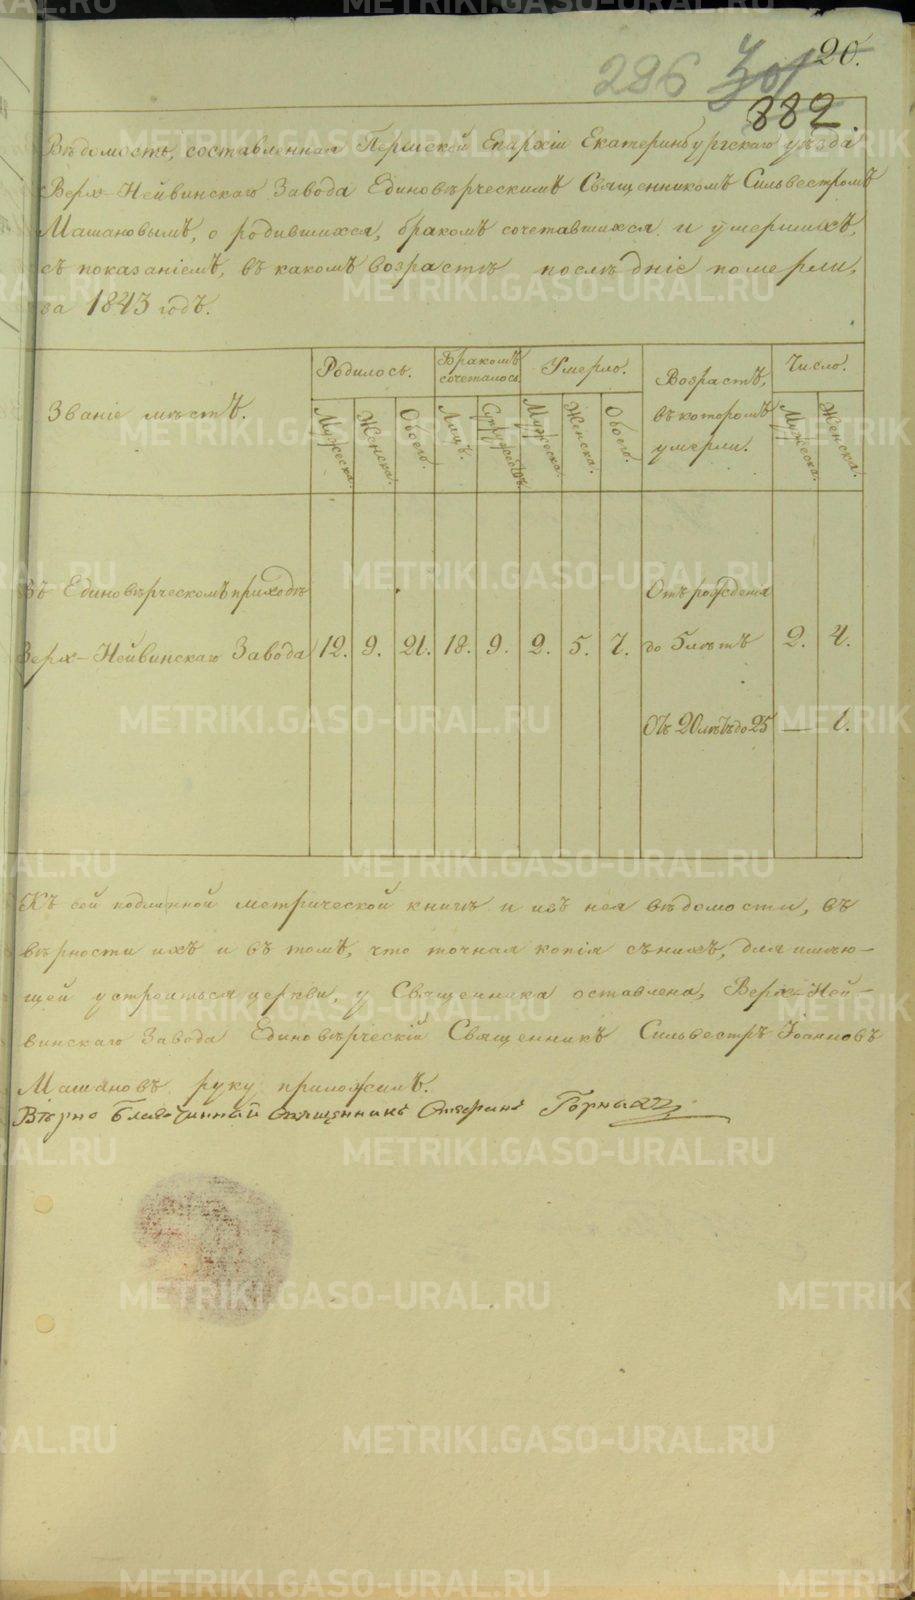 296 301 20.
882.
Вѣдомость, составленная Пермской Епархіи Екатеринбургскаго уѣзда
Верх-Нейвинскаго Завода Единовѣрческимъ Священникомъ Сильвестромъ
Машановымъ, о родившихся, бракомъ сочетавшихся и умершихъ,
съ показаніемъ, въ какомъ возрастѣ послѣдніе померли,
за 1843 годъ.
Званіе мѣстъ.
Родилось. Бракомъ сочеталось. Умерло. Возрастъ, въ которомъ умерли. Число.
Мужеска. Женска. Обоего. Лицъ. Супружествъ. Мужеска. Женска. Обоего. Мужеска. Женска.
Въ Единовѣрческомъ приходѣ Отъ рожденія
Верх-Нейвинскаго Завода 12. 9. 21. 18. 9. 2. 5. 7. до 5 лѣтъ 2. 4.
Отъ 20 лѣтъ до 25 — 1.
Къ сей подлинной метрической книгѣ и изъ нея вѣдомости, въ
вѣрности ихъ и въ томъ, что точная копія съ нихъ, для имѣю-
щей устроиться церкви, у Священника оставлена, Верх-Ней-
винскаго Завода Единовѣрческій Священникъ Сильвестръ Іоанновъ
Машановъ руку приложилъ.
Вѣрно Благочинный Священникъ Стефанъ
METRIKI.GASO-URAL.RU